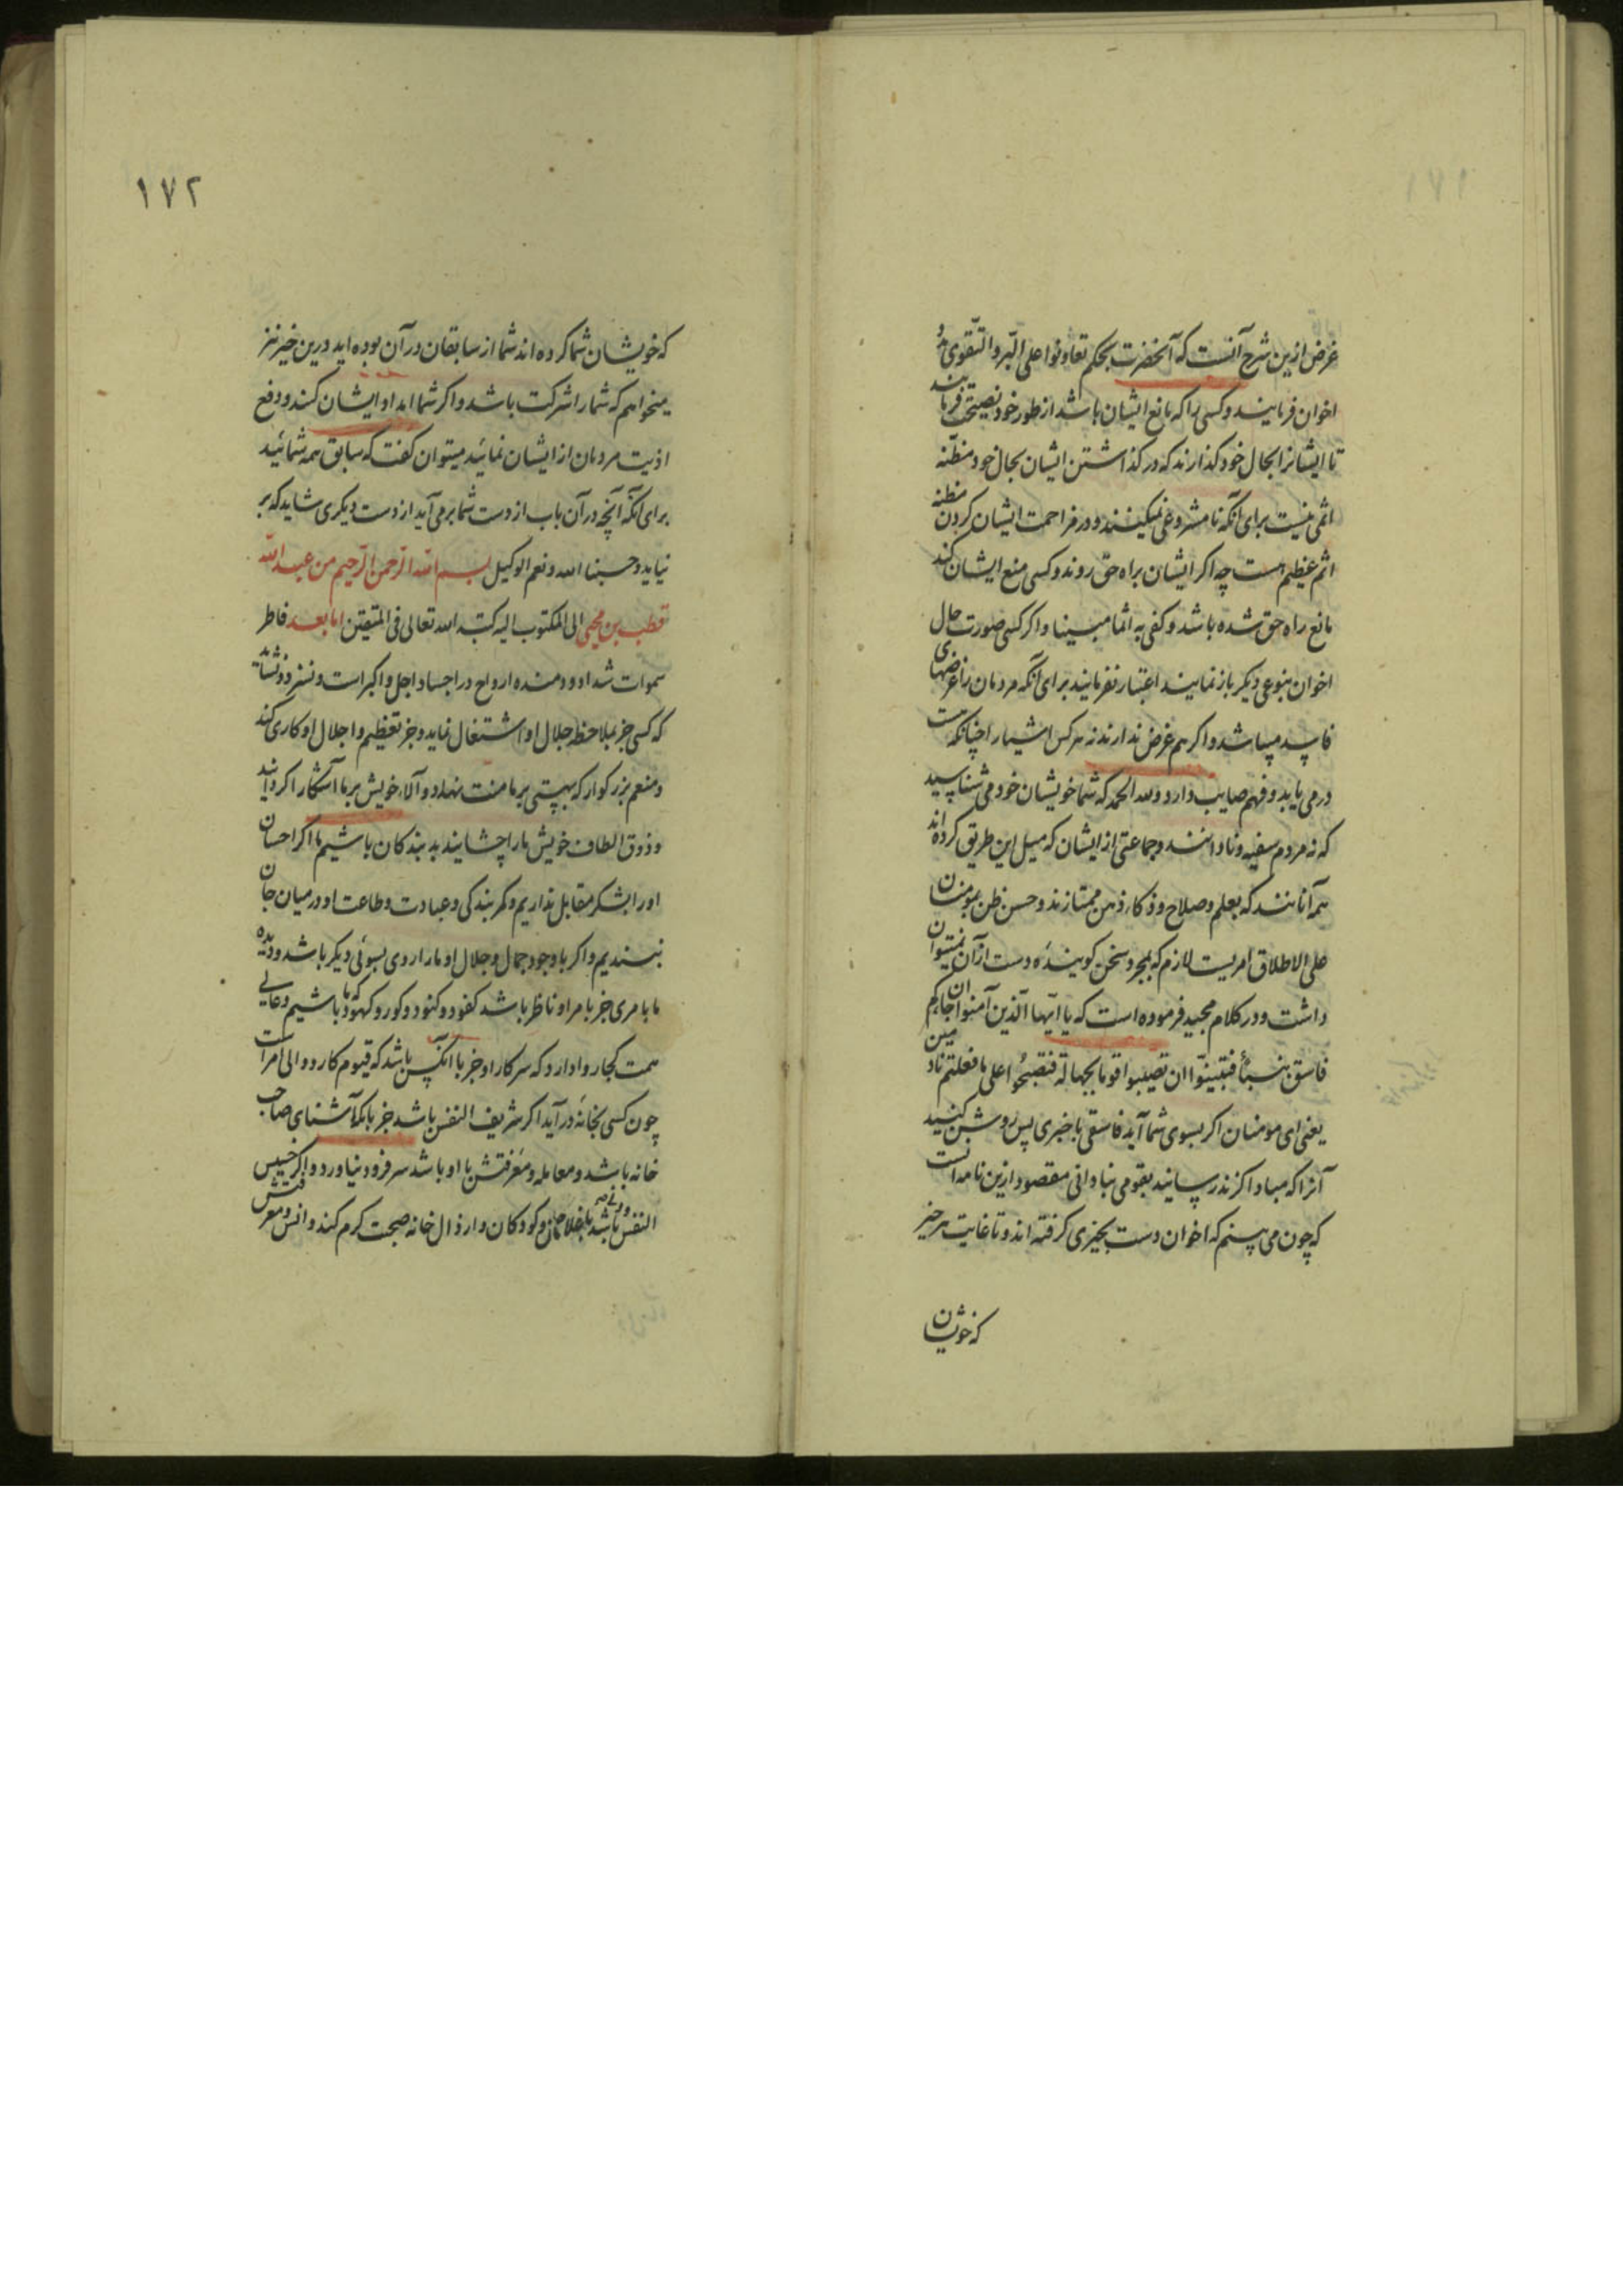 ١٧١
غرض ازین شرح آنست که آنحضرت بحکم تعاونوا علی البر والتقوی مدد
اخوان فرمایند و کسی را که مانع ایشان باشد از طور خود نصیحت فرمایند
تا ایشانرا بحال خود کذارند که در کذاشتن ایشان بحال خود مظنه
اثمی نیست برای آنکه نامشروعی نمیکنند و در مزاحمت ایشان کردن مظنه
اثم عظیم هست چه اکر ایشان براه حق روند و کسی منع ایشان کند
مانع راه حق شده باشد و کفی به اثما مبینا و اکر کسی صورت حال
اخوان بنوعی دیکر باز نمایند اعتبار نفرمایند برای آنکه مردمان را غرضهای
فاسد میباشد و اکر هم غرض ندارند نه هرکس اشیا را چنانکه هست
درمی یابد و فهم صایب دارد ولله الحمد که شما خویشان خود می شناسید
که نه مردم سفیه و نادانند و جماعتی از ایشان که میل این طریق کرده اند
همه آنانند که بعلم و صلاح و ذکار ذهن ممتازند و حسن ظن بمومنان
علی الاطلاق امریست لازم که بمجرد سخن کوینده دست ازآن نمیتوان
داشت و در کلام مجید فرموده است که یا ایها الذین آمنوا ان جاءکم
فاسق بنبأ فتبینوا ان تصیبوا قوما بجهالة فتصبحوا علی ما فعلتم نادمین
یعنی ای مومنان اکر بسوی شما آید فاسقی با خبری پس روشن کنید
آنرا که مبادا کزند رسانید بقومی بنادانی مقصود ازین نامه آنست
که چون می بینم که اخوان دست بخیری کرفته اند و تا غایت هر خیر
که خویشان
١٧٢
که خویشان شما کرده اند شما از سابقان در آن بوده اید درین خیر نیز
میخواهم که شما را شرکت باشد و اکر شما امداد ایشان کنند و دفع
اذیت مردمان از ایشان نمائید میتوان کفت که سابق همه شمائید
برای آنکه آنچه در آن باب از دست شما برمی آید از دست دیکری شاید که بر
نیاید وحسبنا الله ونعم الوکیل بسم الله الرحمن الرحیم من عبد الله
قطب بن محیی الی المکتوب الیه کتبه الله تعالی فی المتقین اما بعد فاطر
سموات شداد و دمنده ارواح در اجساد اجل و اکبر است و نسزد و نشاید
که کسی جز بملاحظه جلال او اشتغال نماید و جز تعظیم و اجلال او کاری کند
و منعم بزرکوار که بهستی بر ما منت نهاد و آلاء خویش بر ما آشکارا کردانید
و ذوق الطاف خویش ما را چشانید بد بندکان باشیم ما اکر احسان
او را بشکر مقابل نداریم و کمر بندکی و عبادت و طاعت او در میان جان
نبندیم و اکر با وجود جمال و جلال او ما را روی بسوئی دیکر باشد و دیده
ما بامری جز بامر او ناظر باشد کفود و کنود و کور و کهود که ما باشیم و عالی
همت کجا روا دارد که سر کار او جز با آنکس باشد که قیوم کار و والی امر است
چون کسی بخانه درآید اکر شریف النفس باشد جز بانکه آشنای صاحب
خانه باشد و معامله و معرفتش با او باشد سر فرود نیاورد و اکر خسیس
النفس باشد با غلامان و کودکان و ارذال خانه صحبت کرم کند و انس و معرفتش